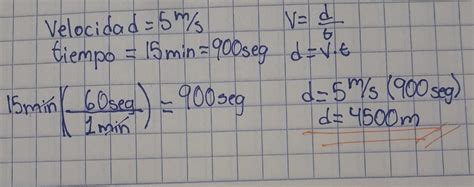 Velocidad = 5 m/s
tiempo = 15min = 900seg
15min (60seg/1min) = 900seg
V = d/t
d = V·t
d = 5 m/s (900seg)
d = 4500m